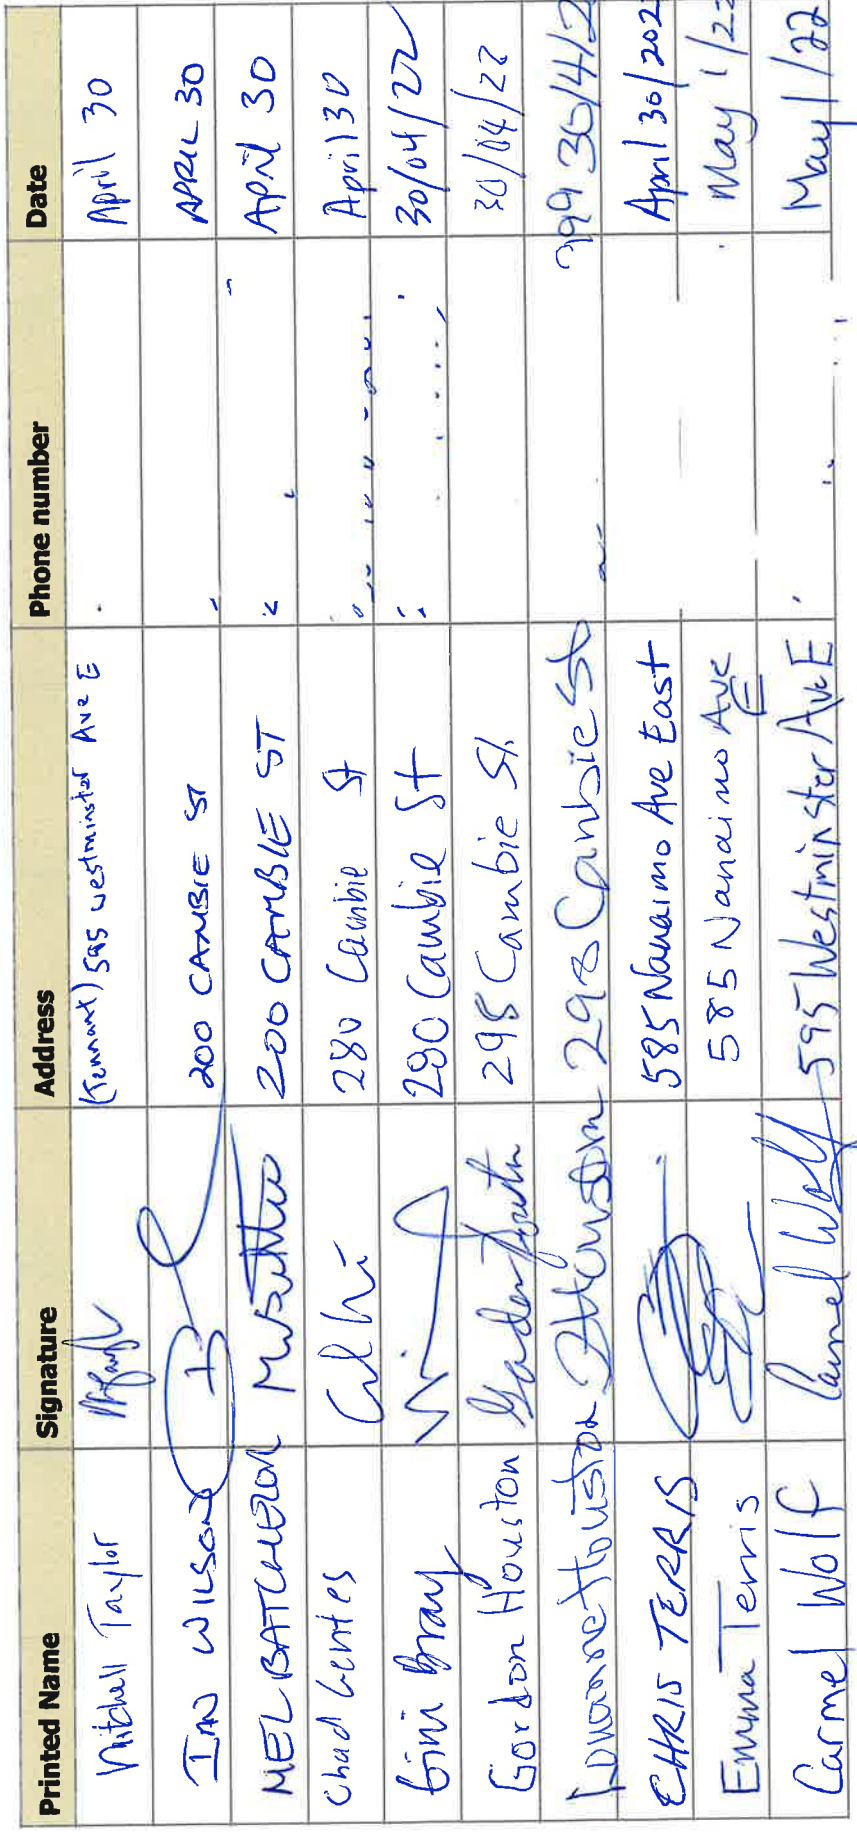 Printed Name Signature Address Phone number Date
Mitchell Taylor (Tennant) 595 westminster Ave E April 30
IAN WILSON 200 CAMBIE ST APRIL 30
MEL BATCHELOR 200 CAMBIE ST April 30
Chad Gentes 280 Cambie St April 30
Gini Bray 280 Cambie St 30/04/22
Gordon Houston 298 Cambie St. 30/04/22
Houston 298 Cambie St 30/4/2
CHRIS TERRIS 585 Nanaimo Ave East April 30/202
Emma Terris 585 Nanaimo Ave E May 1/22
Carmel Wolf Carmel Wolf 595 Westminster Ave E May 1/22